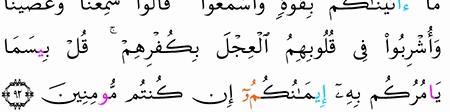 مَا ءَاتَيْنَٰكُم بِقُوَّةٍ وَٱسْمَعُوا۟ قَالُوا۟ سَمِعْنَا وَعَصَيْنَا
وَأُشْرِبُوا۟ فِى قُلُوبِهِمُ ٱلْعِجْلَ بِكُفْرِهِمْ ۚ قُلْ بِيسَمَا
يَامُرُكُم بِهِۦٓ إِيمَٰنُكُمُۥٓ إِن كُنتُم مُّومِنِينَ ٩٣